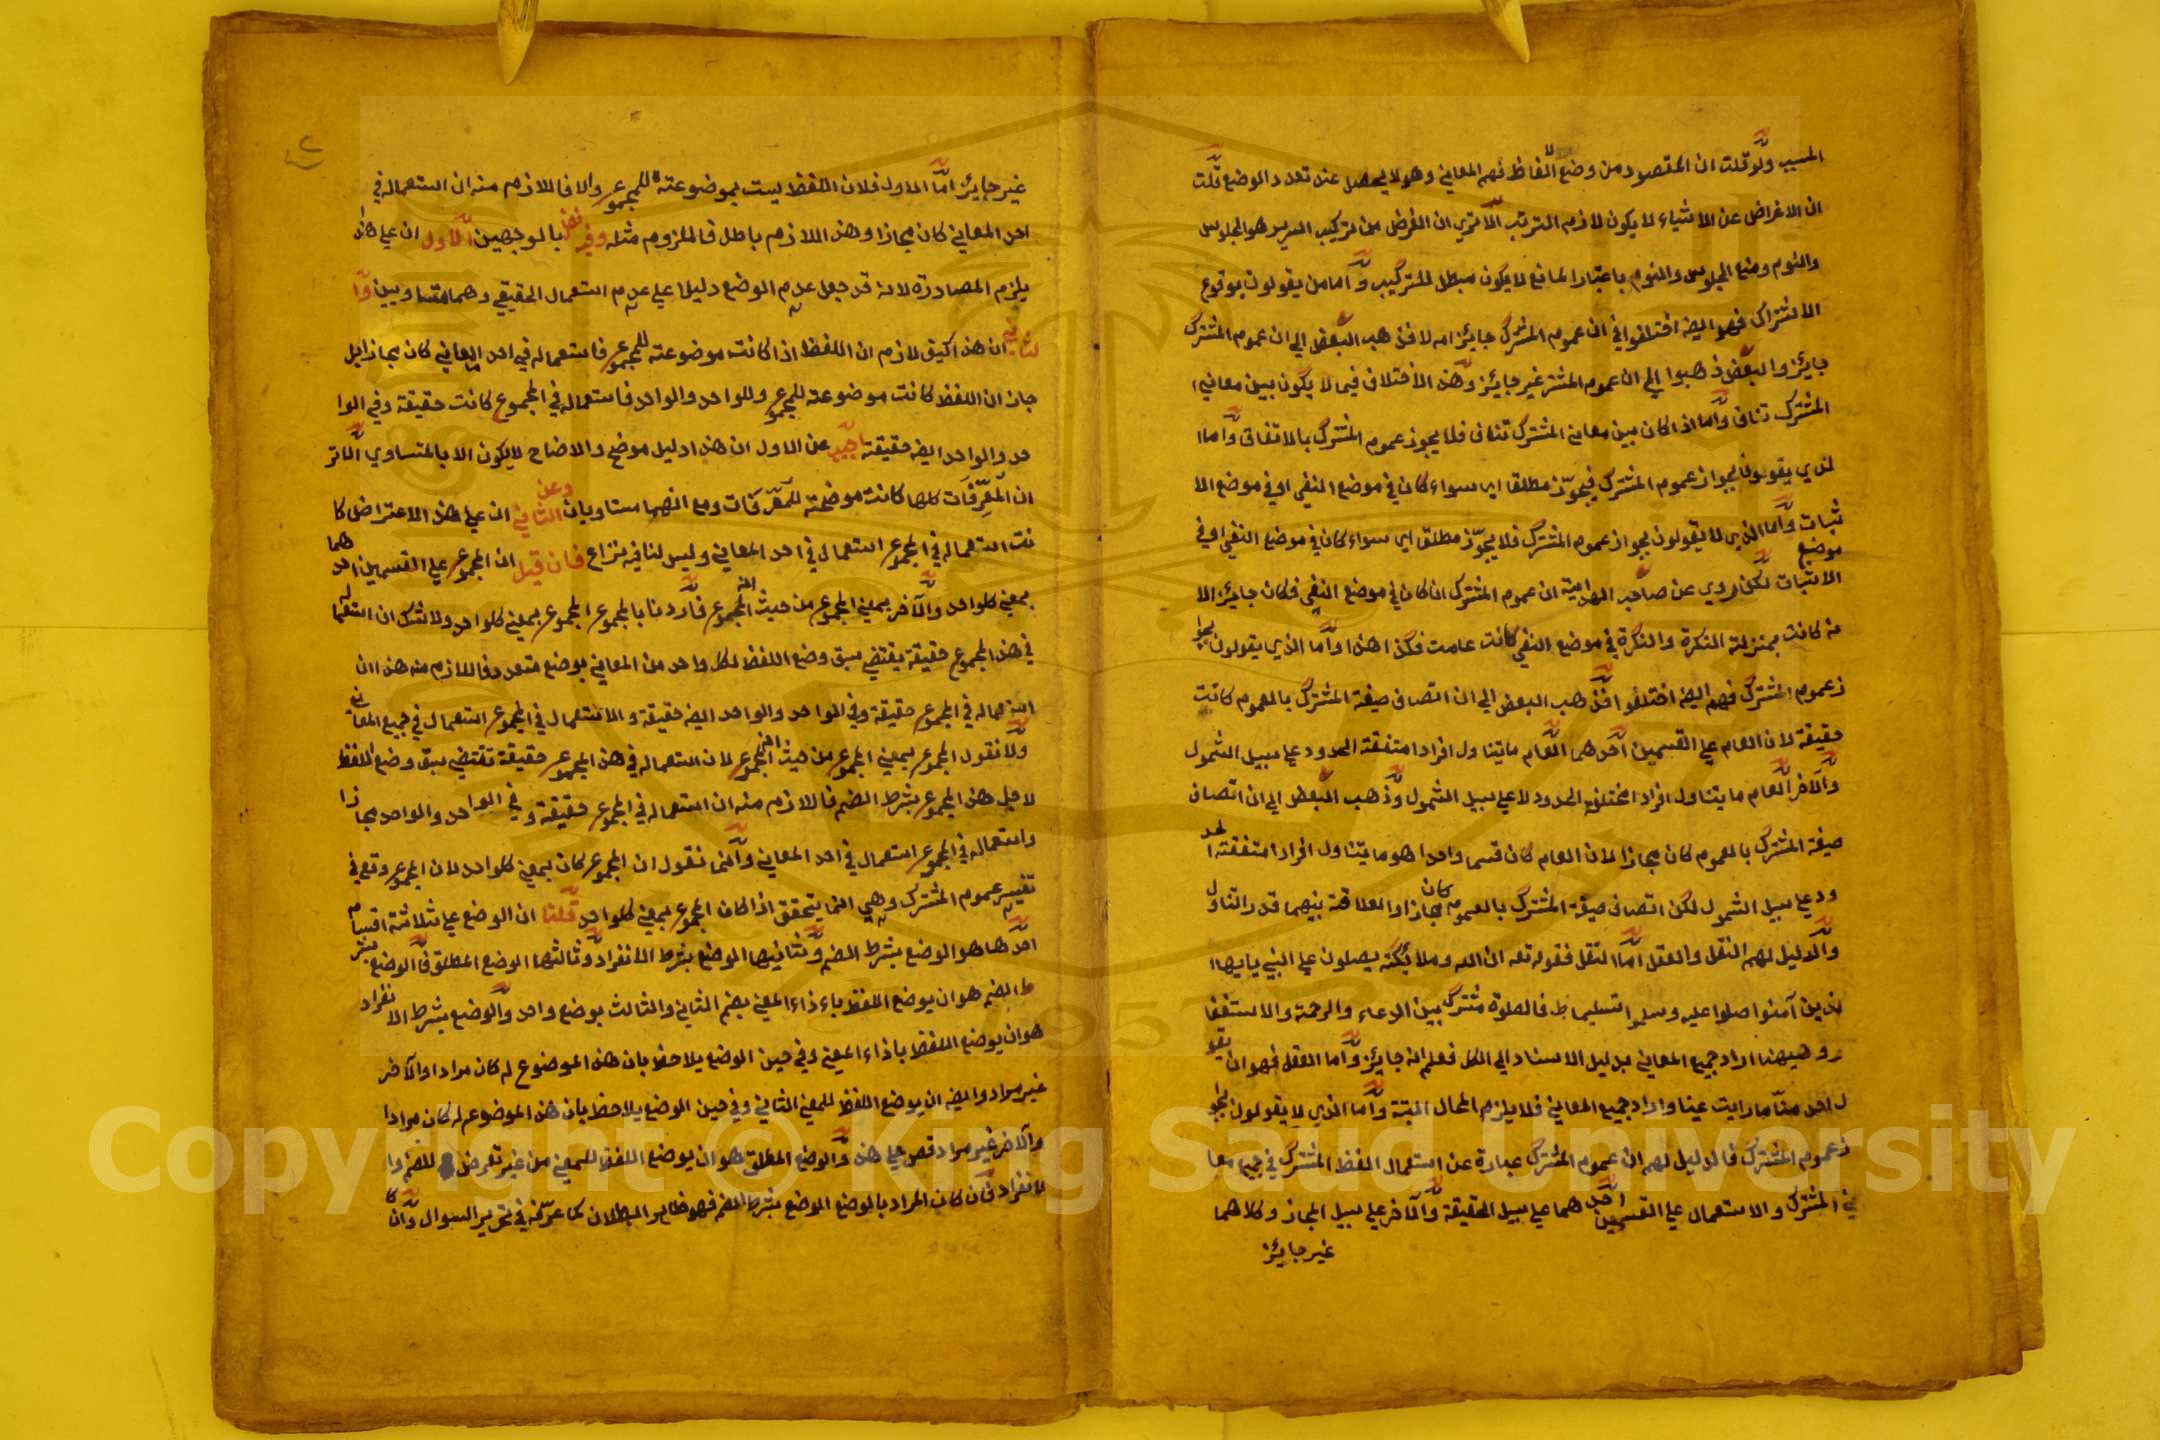 المسبب ولو قلت ان المقصود من وضع الفاظ فهم المعاني وهو لا يحصل عند تعدد الوضع قلت
ان الاغراض عن الاشياء لا يكون لازم الترتب الا ترى ان الغرض من تركيب السرير هو الجلوس
والنوم ومنع الجلوس والنوم باعتبار المانع لا يكون مبطل للتركيب واما من يقولون بوقوع
الاشتراك فهو ايضه اختلفوا في ان عموم المشترك جايز ام لا فذهب البعض الى ان عموم المشترك
جايز والبعض ذهبوا الى ان عموم المشتر غير جايز وهذه الاختلاف فيما لا يكون بين معاني ا
المشترك تنافى واما اذا كان بين معاني المشترك تنافى فلا يجوز عموم المشترك بالاتفاق واما ا
لذي يقولون بجواز عموم المشترك فيجوّز مطلقا اى سواء كان في موضع النفى او في موضع الا
ثبات واما الذي لا يقولون بجواز عموم المشترك فلا يجوّز مطلقا اى سواء كان في موضع النفى او في موضع
الاثبات لكن روي عن صاحب الهداية ان عموم المشترك ان كان في موضع النفى فكان جايز الا
نه كانت بمنزلة النكرة والنكرة في موضع النفى كانت عامت فكذا هذا واما الذي يقولون بجوا
ز عموم المشترك فهم ايضه اختلفوا فذهب البعض الى ان اتصاف صيغة المشترك بالعموم كانت
حقيقة لان العام على القسمين احدهما العام ما يتناول افرادا متفقة الحدود على سبيل الشمول
والآخر العام ما يتناول افراد المختلفة الحدود لا على سبيل الشمول وذهب البعض الى ان اتصاف
صيغة المشترك بالعموم كان مجازا لان العام كان قسما واحدا هو ما يتناول افرادا متفقته الحد
ود على سبيل الشمول لكن اتصاف صيغة المشترك بالعموم كان مجازا والعلاقة بينهما قدر التناول
والدليل لهم النقل والعقل اما النقل فقوله تعه ان الله وملائكته يصلون على النبي يايها ا
لذين آمنوا صلوا عليه وسلموا تسليما ط فالصلوة مشترك بين الدعاء والرحمة والاستغفا
ر وههنا اراد جميع المعاني بدليل الاسناد الى الكل فعلم انه جايز واما العقل فهو ان يقو
ل احد منا ما رايت عينا واراد جميع المعاني فلا يلزم المحال البتة واما الذي لا يقولون بجوا
ز عموم المشترك فالدليل لهم ان عموم المشترك عبارة عن استعمال اللفظ المشترك في جميع معا
ني المشترك والاستعمال على القسمين احدهما على سبيل الحقيقة والآخر على سبيل المجاز وكلاهما
غير جايز
٢
غير جايز اما الاول فلان اللفظ ليست بموضوعته للمجموع والا فاللازم منه ان استعماله في
احد المعاني كان مجازا وهذه اللازم باطل فالملزوم مثله وفيه نظر بالوجهين الاول ان على هذا
يلزم المصادرة لانه قد جعل عدم الوضع دليلا على عدم استعمال الحقيقي وهما متساويين وا
لثاني ان هذا كيف لازم ان اللفظ اذا كانت موضوعته للمجموع فاستعماله في احد المعاني كان مجازا بل
جاز ان اللفظ كانت موضوعته للمجموع وللواحد والواحد فاستعماله في المجموع كانت حقيقة وفي الوا
حد والواحد ايضه حقيقته اجيب عن الاول ان هذا دليل موضح والاضاح لا يكون الا بالمتساوي الا تر
ان المعرِّفات كلها كانت موضحته للمعرَّفات ومع انهما متساويان وعن الثاني ان على هذه الاعتراض كا
نت استعماله في المجموع استعمال في احد المعاني وليس لنا فيه نزاع فان قيل ان المجموع على القسمين احدهما
بمعنى كلواحد والآخر بمعنى المجموع من حيث المجموع فاردنا بالمجموع المجموع بمعنى كلواحد ولا شك ان استعماله
في هذه المجموع حقيقة يقتضى سبق وضع اللفظ لكل واحد من المعاني بوضع متعدد فاللازم منه هذه ان
استعماله في المجموع حقيقة وفي الواحد والواحد ايضه حقيقة والاستعمال في المجموع استعمال في جميع المعاني
ولا نقول المجموع بمعنى المجموع من حيث المجموع لان استعماله في هذه المجموع حقيقة تقتضى سبق وضع اللفظ
لاجل هذه المجموع بشرط الضم فاللازم منه ان استعماله في المجموع حقيقة وفي الواحد والواحد مجازا
واستعماله في المجموع استعمال في احد المعاني وانما نقول ان المجموع كان بمعنى كلواحد لان المجموع وقع في
تفسير عموم المشترك وهي انما يتحقق اذا كان المجموع بمعنى كلواحد قلنا ان الوضع على ثلاثة اقسام
احدها هو الوضع بشرط الضم وثانيها الوضع بشرط الانفراد وثالثها الوضع المطلق فالوضع بشر
ط الضم هو ان يوضع اللفظ باءذاء المعنى بضم الثاني والثالث بوضع واحد والوضع بشرط الانفراد
هو ان يوضع اللفظ باذاء المعنى وفي حين الوضع يلاحظ بان هذه الموضوع له كان مرادا والآخر
غير مراد وايضه ان يوضع اللفظ للمعنى الثاني وفي حين الوضع يلاحظ بان هذه الموضوع له كان مرادا
والآخر غير مراد قص على هذه والوضع المطلق هو ان يوضع اللفظ للمعنى من غير تعرض للضم وا
لانفراد فان كان المراد بالوضع الوضع بشرط الضم فهو ظاهر البطلان كما عرفته في تحرير السوال وان كا